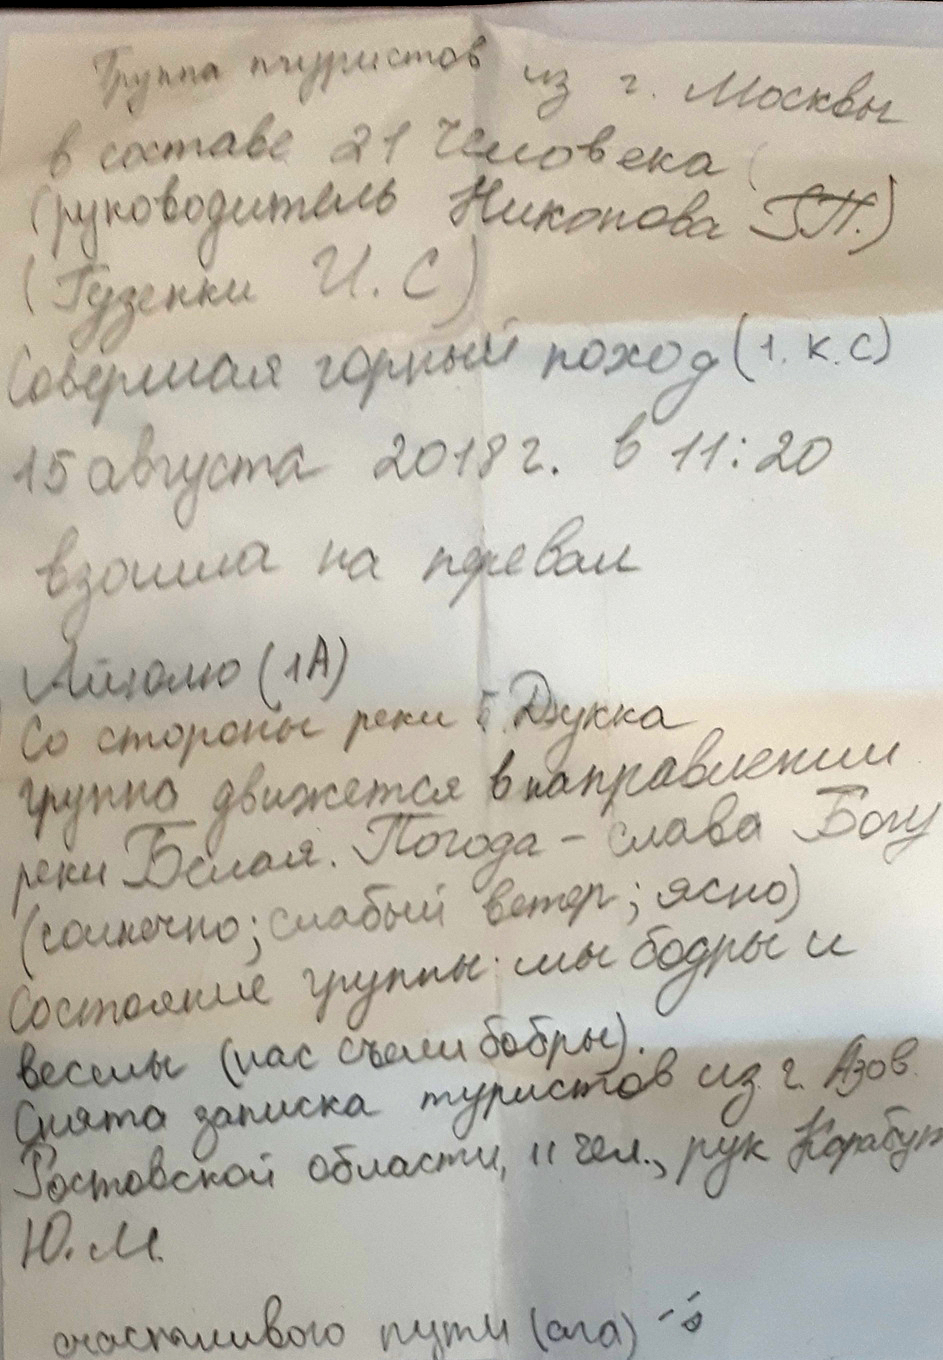 Группа туристов из г. Москвы
в составе 21 человека (
(руководитель Никонова Г.П.)
(Гузенки И. С)
Совершая горный поход (1. к. с)
15 августа 2018 г. в 11:20
взошла на перевал
Айюлю (1А)
Со стороны реки Б. Дукка
группа движется в направлении
реки Белая. Погода - слава Богу
(солнечно; слабый ветер; ясно)
Состояние группы: мы бодры и
веселы (нас съели бобры).
Снята записка туристов из г. Азов
Ростовской области, 11 чел., рук Карабут
Ю. М.
счастливого пути (ога)